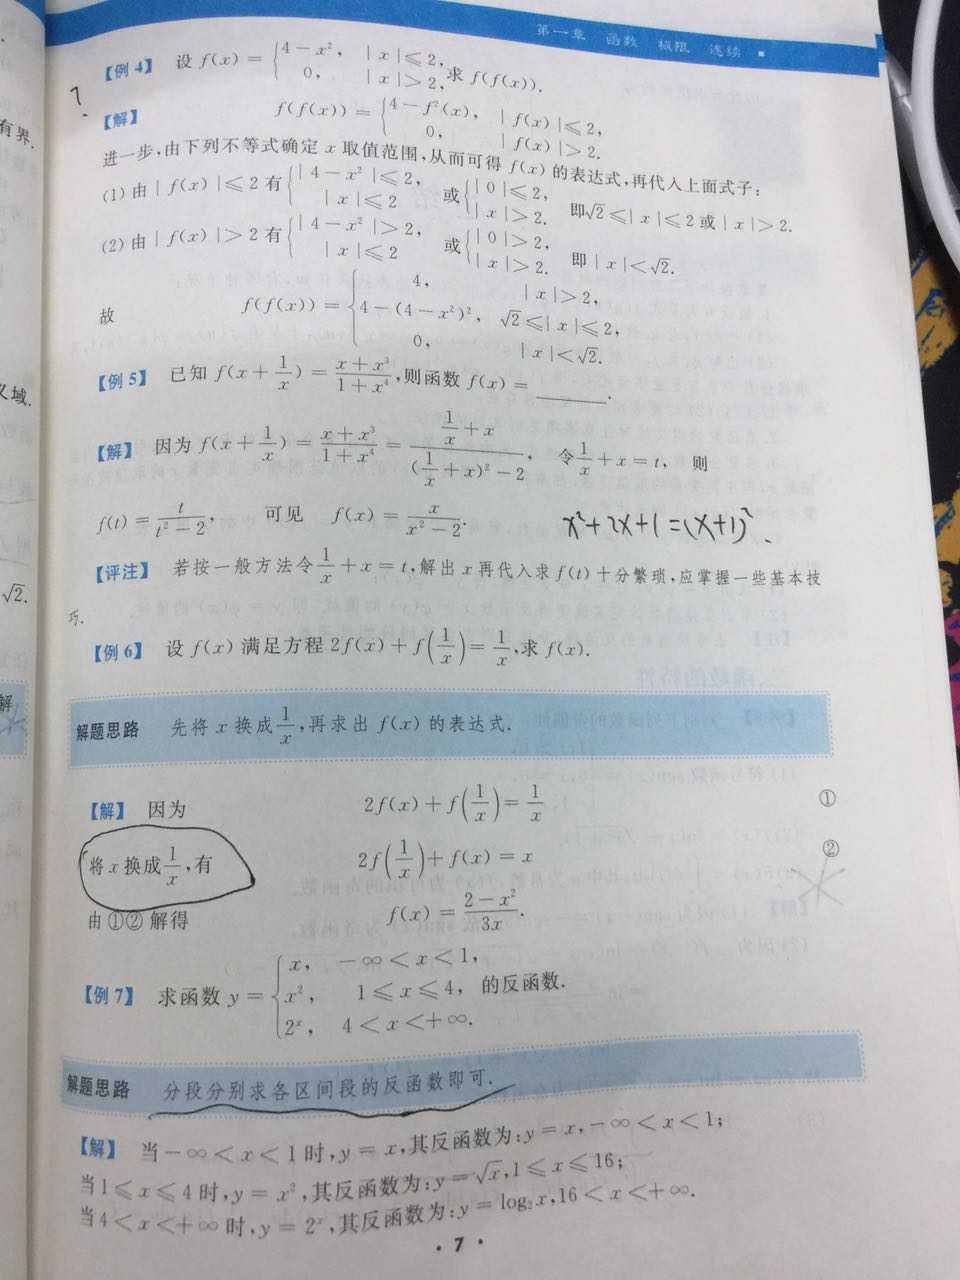 第一章 函数 极限 连续
【例4】 设 f(x) = { 4 − x², | x | ≤ 2, 0, | x | > 2, 求 f(f(x)).
7
【解】 f(f(x)) = { 4 − f²(x), | f(x) | ≤ 2, 0, | f(x) | > 2.
有界.
进一步,由下列不等式确定 x 取值范围,从而可得 f(x) 的表达式,再代入上面式子:
(1) 由 | f(x) | ≤ 2 有 { | 4 − x² | ≤ 2, | x | ≤ 2 或 { | 0 | ≤ 2, | x | > 2. 即 √2 ≤ | x | ≤ 2 或 | x | > 2.
(2) 由 | f(x) | > 2 有 { | 4 − x² | > 2, | x | ≤ 2 或 { | 0 | > 2, | x | > 2. 即 | x | < √2.
故 f(f(x)) = { 4, | x | > 2, 4 − (4 − x²)², √2 ≤ | x | ≤ 2, 0, | x | < √2.
义域.
【例5】 已知 f(x + 1/x) = (x + x³)/(1 + x⁴), 则函数 f(x) = ______.
【解】 因为 f(x + 1/x) = (x + x³)/(1 + x⁴) = (1/x + x)/((1/x + x)² − 2), 令 1/x + x = t, 则
f(t) = t/(t² − 2), 可见 f(x) = x/(x² − 2).
x² + 2x + 1 = (x+1)²
【评注】 若按一般方法令 1/x + x = t, 解出 x 再代入求 f(t) 十分繁琐, 应掌握一些基本技
√2.
巧.
【例6】 设 f(x) 满足方程 2f(x) + f(1/x) = 1/x, 求 f(x).
解
解题思路 先将 x 换成 1/x, 再求出 f(x) 的表达式.
【解】 因为 2f(x) + f(1/x) = 1/x ①
将 x 换成 1/x, 有 2f(1/x) + f(x) = x ②
由 ①② 解得 f(x) = (2 − x²)/3x.
【例7】 求函数 y = { x, −∞ < x < 1, x², 1 ≤ x ≤ 4, 2ˣ, 4 < x < +∞. 的反函数.
解题思路 分段分别求各区间段的反函数即可.
【解】 当 −∞ < x < 1 时, y = x, 其反函数为: y = x, −∞ < x < 1;
当 1 ≤ x ≤ 4 时, y = x², 其反函数为: y = √x, 1 ≤ x ≤ 16;
当 4 < x < +∞ 时, y = 2ˣ, 其反函数为: y = log₂x, 16 < x < +∞.
· 7 ·